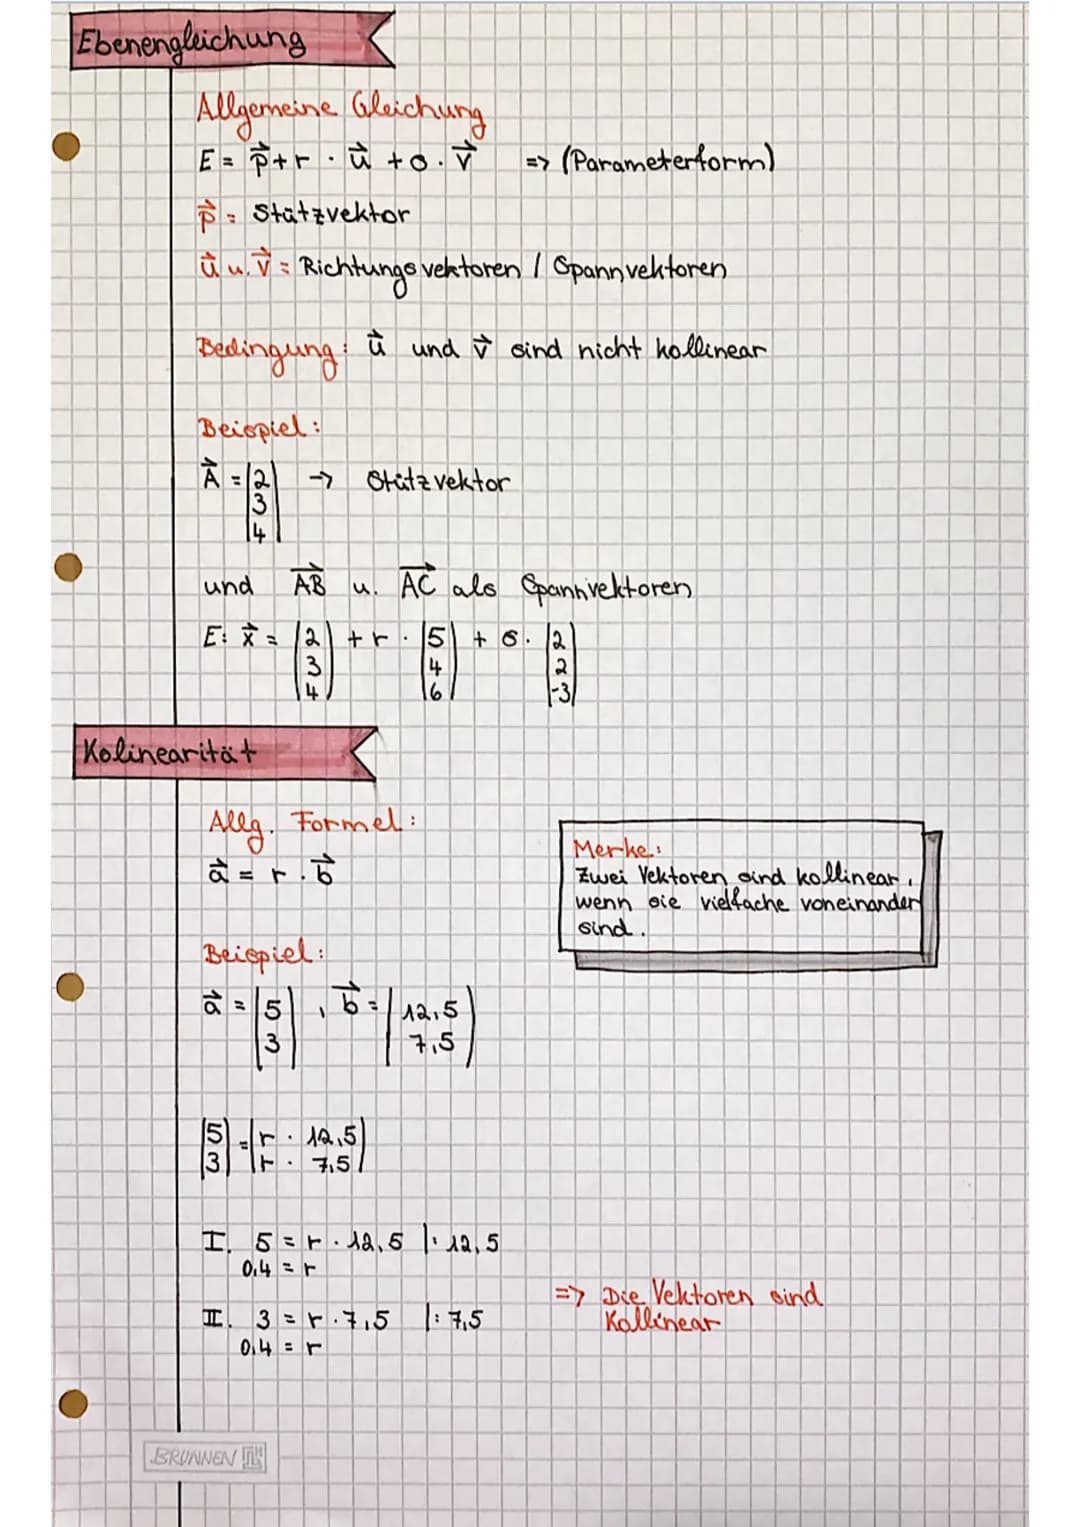 Ebenengleichung
Allgemeine Gleichung
E = p⃗ + r · u⃗ + s · v⃗ => (Parameterform)
p⃗ = Stützvektor
u⃗ u. v⃗ = Richtungsvektoren / Spannvektoren
Bedingung: u⃗ und v⃗ sind nicht kollinear
Beispiel:
A⃗ = (2 3 4) → Stützvektor
und AB⃗ u. AC⃗ als Spannvektoren
E: x⃗ = (2 3 4) + r · (5 4 6) + s · (2 2 -3)
Kolinearität
Allg. Formel:
a⃗ = r · b⃗
Merke:
Zwei Vektoren sind kollinear,
wenn sie vielfache voneinander
sind.
Beispiel:
a⃗ = (5 3), b⃗ = (12,5 7,5)
(5 3) = (r · 12,5 r · 7,5)
I. 5 = r · 12,5 |: 12,5
0,4 = r
II. 3 = r · 7,5 |: 7,5
0,4 = r
=> Die Vektoren sind
Kollinear
BRUNNEN